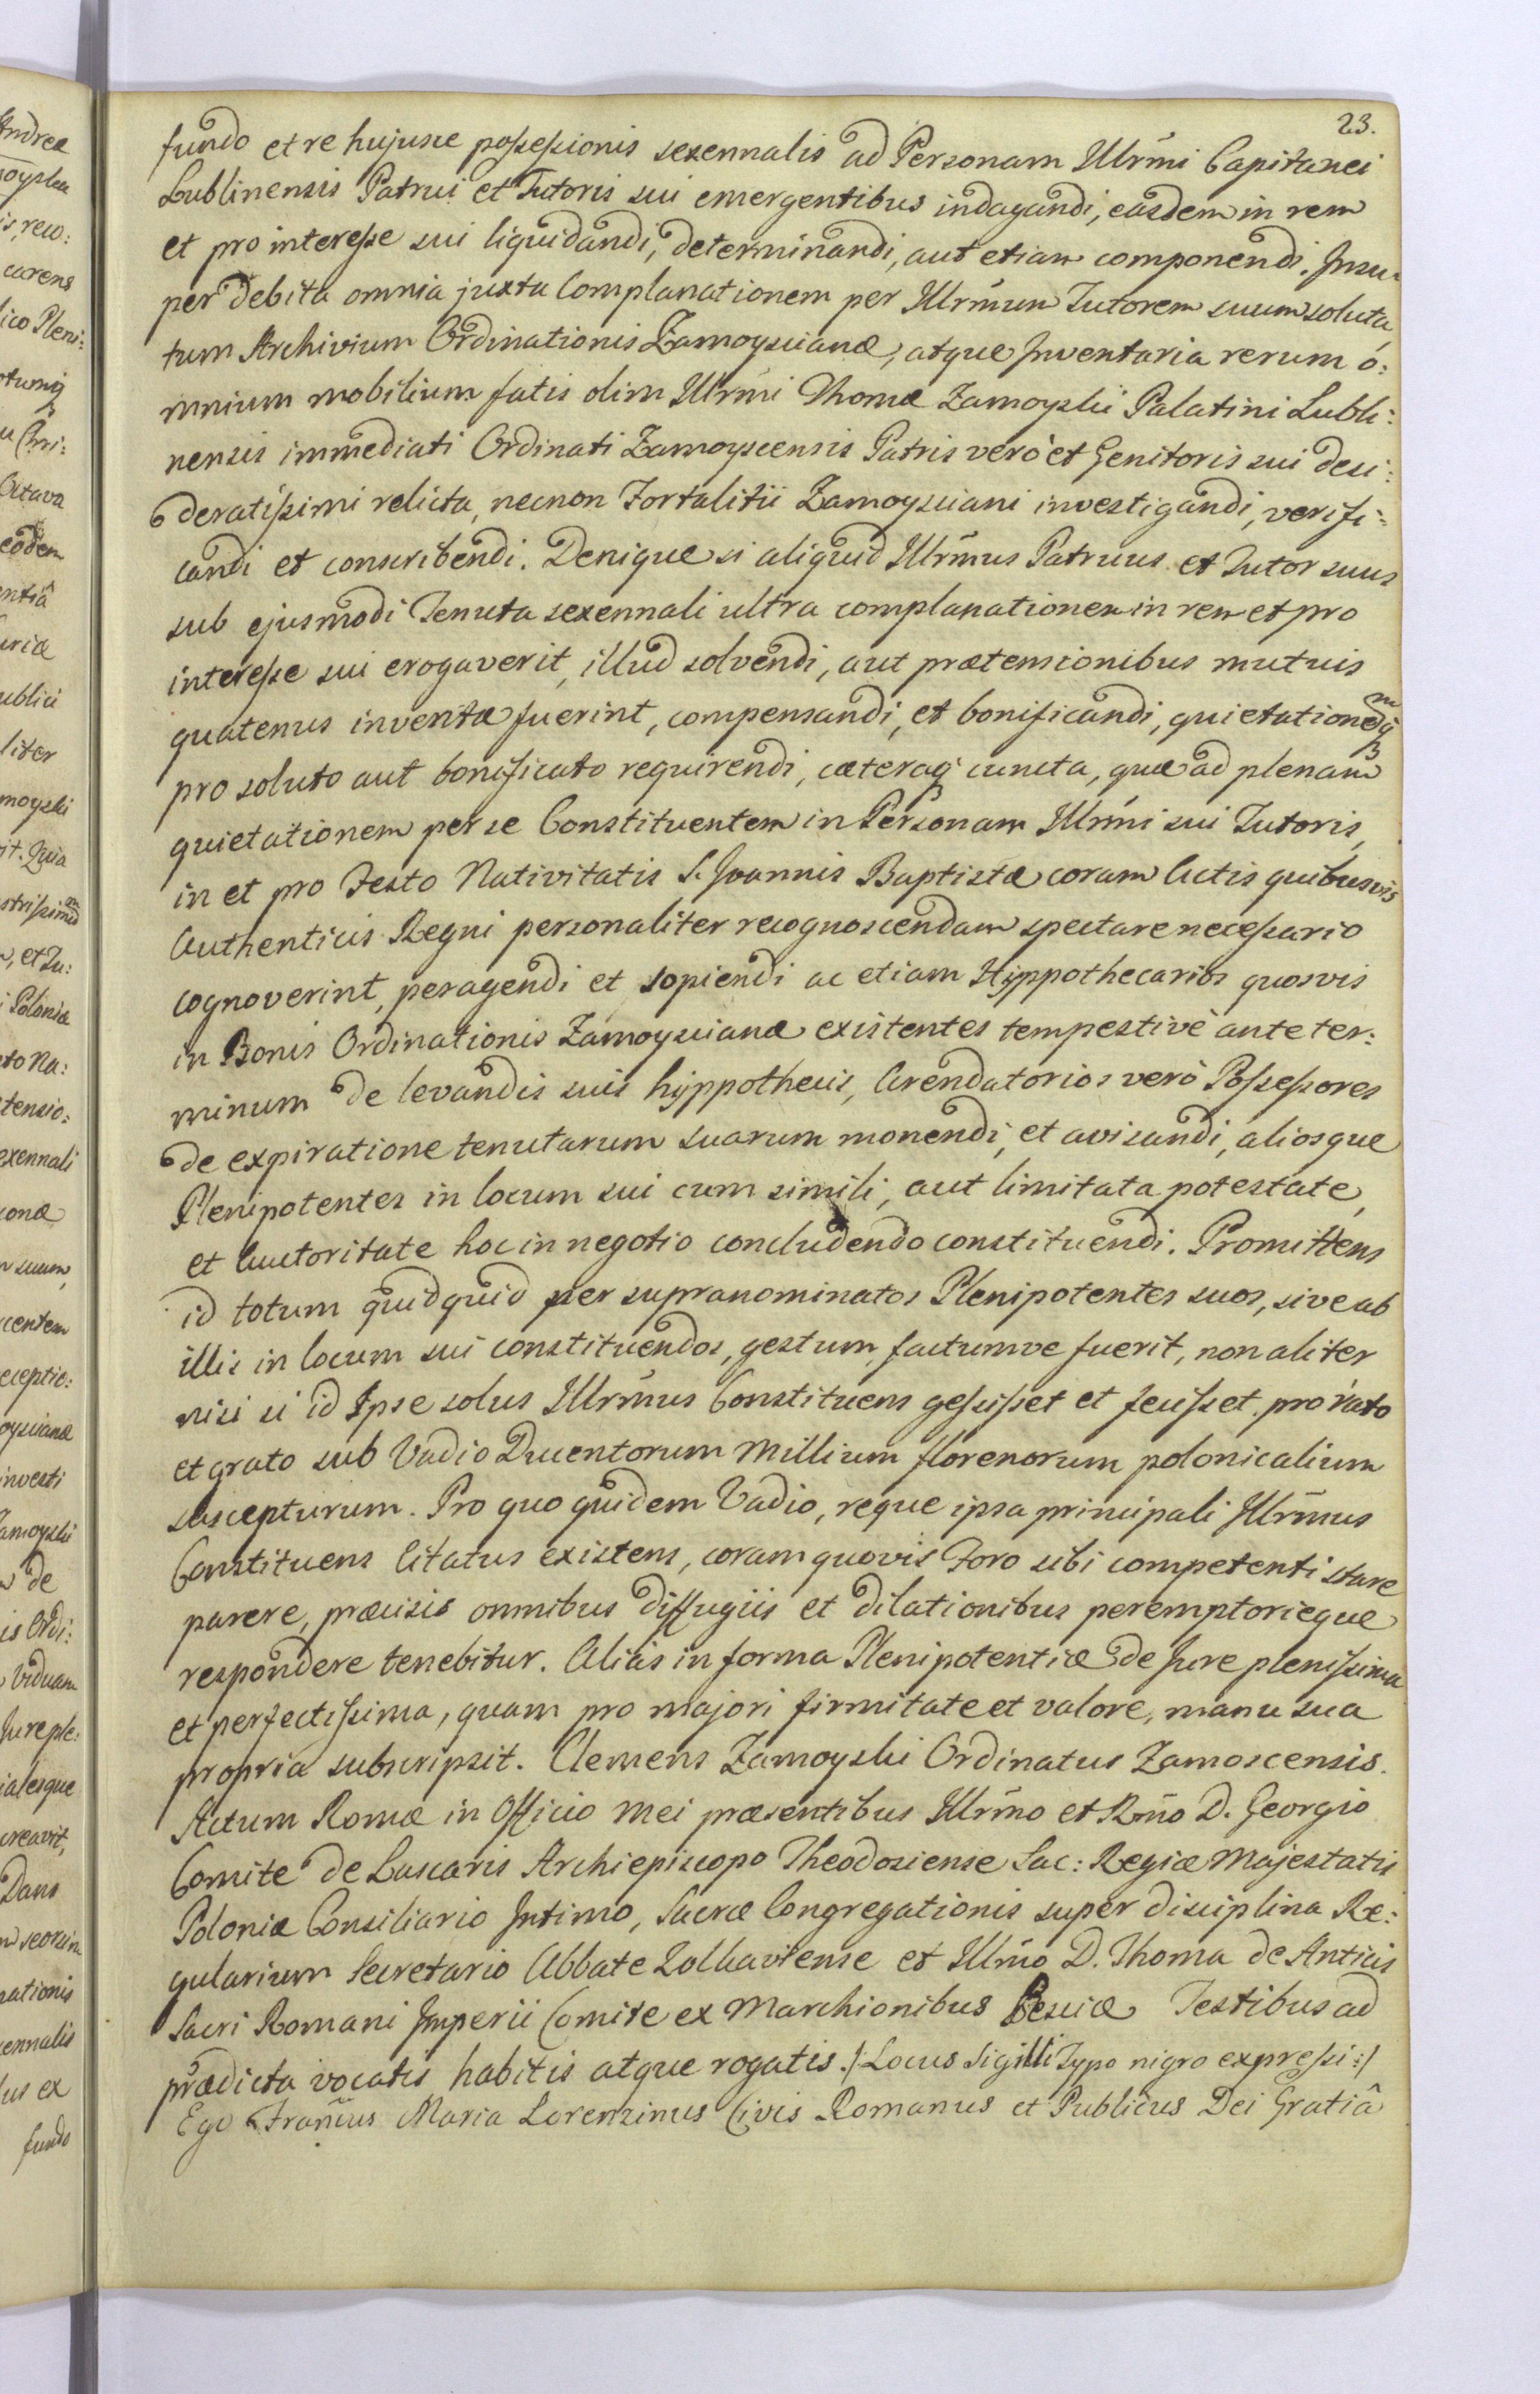 23.
fundo et re hujusce possessionis sexennalis ad Personam Illrm̄i Capitanei
Lublinensis Patrui et Tutoris sui emergentibus indagandi, easdem in rem
et pro interesse sui liquidandi, determinandi, aut etiam componendi. Insu-
per debita omnia juxta Complanationem per Illrm̄um Tutorem suum soluta,
tum Archivium Ordinationis Zamoyscianæ, atque Inventaria rerum o:
mnium mobilium fatis olim Illrm̄i Thomæ Zamoyskii Palatini Lubli:
nensis immediati Ordinati Zamoyscensis Patris verò et Genitoris sui desi:
deratissimi relicta, necnon Fortalitii Zamoysciani investigandi, verifi-
candi et conscribendi. Denique si aliquid Illrm̄us Patruus et Tutor suus
sub ejusmodi Tenuta sexennali ultra complanationem in rem et pro
interesse sui erogaverit, illud solvendi, aut prætensionibus mutuis
quatenus inventæ fuerint, compensandi, et bonificandi, quietationemq3
pro soluto aut bonificato requirendi, cæteraq3 cuncta, quæ ad plenam
quietationem per se Constituentem in Personam Illrm̄i sui Tutoris,
in et pro Festo Nativitatis S. Joannis Baptistæ coram Actis quibusvis
Authenticis Regni personaliter recognoscendam spectare necessario
cognoverint, peragendi et sopiendi ac etiam Hyppothecarios quosvis
in Bonis Ordinationis Zamoyscianæ existentes tempestivè ante ter:
minum de levandis suis hyppothecis, Arendatorios verò Possessores
de expiratione tenutarum suarum monendi, et avisandi, aliosque
Plenipotentes in locum sui cum simili, aut limitata potestate,
et Auctoritate hoc in negotio concludendo constituendi. Promittens
id totum quidquid per supranominatos Plenipotentes suos, sive ab
illis in locum sui constituendos, gestum, factumve fuerit, non aliter
nisi si id Ipse solus Illrm̄us Constituens gessisset et fecisset pro rato
et grato sub Vadio Ducentorum Millium florenorum polonicalium
suscepturum. Pro quo quidem Vadio, reque ipsa principali Illrm̄us
Constituens Citatus existens, coram quovis Foro sibi competenti stare
parere, præcisis omnibus diffugiis et dilationibus peremptorieque
respondere tenebitur. Aliàs in forma Plenipotentiæ de Jure plenissima
et perfectissima, quam pro majori firmitate et valore, manu sua
propria subscripsit. Clemens Zamoyski Ordinatus Zamoscensis.
Actum Romæ in Officio Mei præsentibus Illrm̄o et Rm̄o D. Georgio
Comite de Lascaris Archiepiscopo Theodosiense Sac: Regiæ Majestatis
Poloniæ Consiliario Intimo, Sacræ Congregationis super disciplina Re:
gularium Secretario Abbate Zolkaviense et Illm̄o D. Thoma de Anticis
Sacri Romani Imperii Comite ex Marchionibus Pesciæ Testibus ad
prædicta vocatis habitis atque rogatis. /: Locus Sigilli Typo nigro expressi :/
Ego Franc̄us Maria Lorenzinus Civis Romanus et Publicus Dei Gratiâ